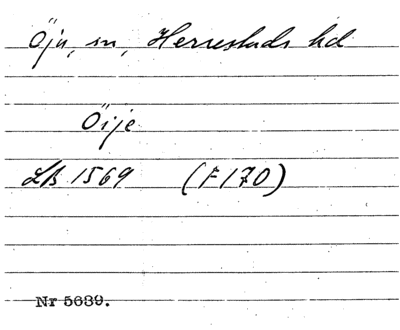 Öja, sn, Herrestads hd
Öije
LB 1569 (F170)
Nr 5639.